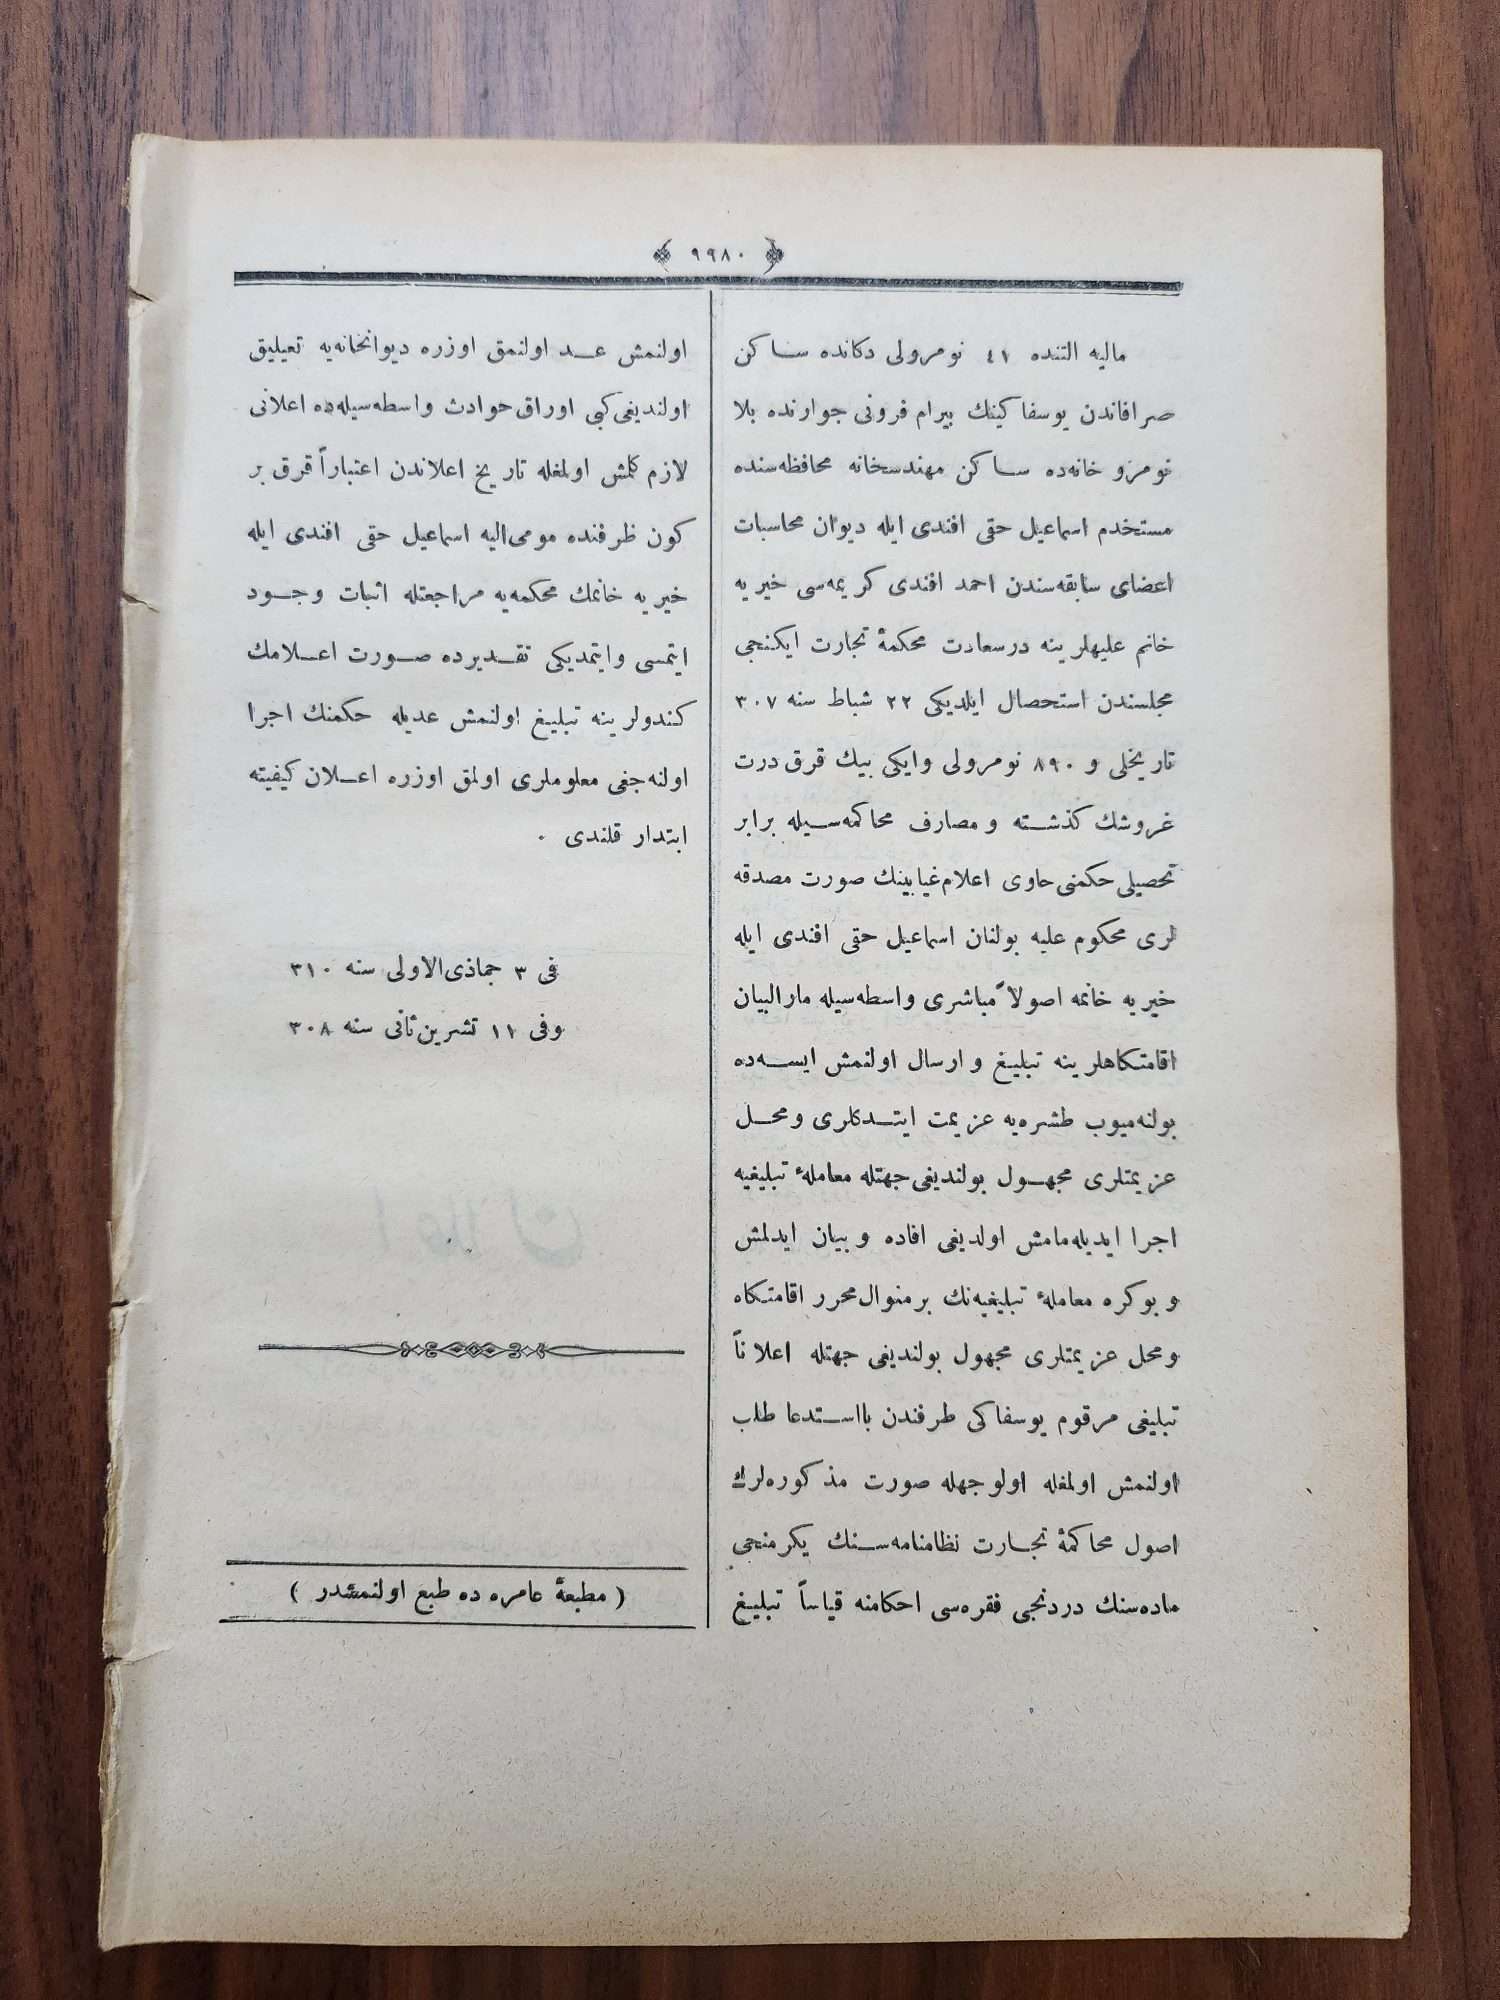 ٩٩٨٠
ماليه التنده ٤١ نومرولى دكانده ساكن
صرافاندن يوسفاكينك بيرام فرونى جوارنده بلا
نومرو خانه‌ده ساكن مهندسخانه محافظه‌سنده
مستخدم اسماعيل حقى افندى ايله ديوان محاسبات
اعضاى سابقه‌سندن احمد افندى كريمه‌سى خيريه
خانم عليهلرينه درسعادت محكمهٔ تجارت ايكنجى
مجلسندن استحصال ايلديكى ٢٢ شباط سنه ٣٠٧
تاريخلى و ٨٩٠ نومرولى وايكى بيك قرق درت
غروشك كذشته ومصارف محاكمه‌سيله برابر
تحصيلى حكمنى حاوى اعلام غيابينك صورت مصدقه
لرى محكوم عليه بولنان اسماعيل حقى افندى ايله
خيريه خانمه اصولاً مباشرى واسطه‌سيله مارالبيان
اقامتكاهلرينه تبليغ وارسال اولنمش ايسه‌ده
بولنه‌ميوب طشره‌يه عزيمت ايتدكلرى ومحل
عزيمتلرى مجهول بولنديغى جهتله معاملهٔ تبليغيه
اجرا ايديله‌مامش اولديغى افاده وبيان ايدلمش
وبوكره معاملهٔ تبليغيه‌نك برمنوال محرر اقامتكاه
ومحل عزيمتلرى مجهول بولنديغى جهتله اعلاناً
تبليغى مرقوم يوسفاكى طرفندن بااستدعا طلب
اولنمش اولمغله اولوجهله صورت مذكوره‌لرك
اصول محاكمهٔ تجارت نظامنامه‌سنك يكرمنجى
ماده‌سنك دردنجى فقره‌سى احكامنه قياساً تبليغ
اولنمش عد اولنمق اوزره ديوانخانه‌يه تعيليق
اولنديغى كبى اوراق حوادث واسطه‌سيله‌ده اعلانى
لازم كلمش اولمغله تاريخ اعلاندن اعتباراً قرق بر
كون ظرفنده مومى‌اليه اسماعيل حقى افندى ايله
خيريه خانمك محكمه‌يه مراجعتله اثبات وجود
ايتمسى وايتمديكى تقديرده صورت اعلامك
كندولرينه تبليغ اولنمش عديله حكمنك اجرا
اولنه‌جغى معلوملرى اولمق اوزره اعلان كيفيته
ابتدار قلندى .
فى ٣ جماذى‌الاولى سنه ٣١٠
وفى ١١ تشرين ثانى سنه ٣٠٨
( مطبعهٔ عامره ده طبع اولنمشدر )